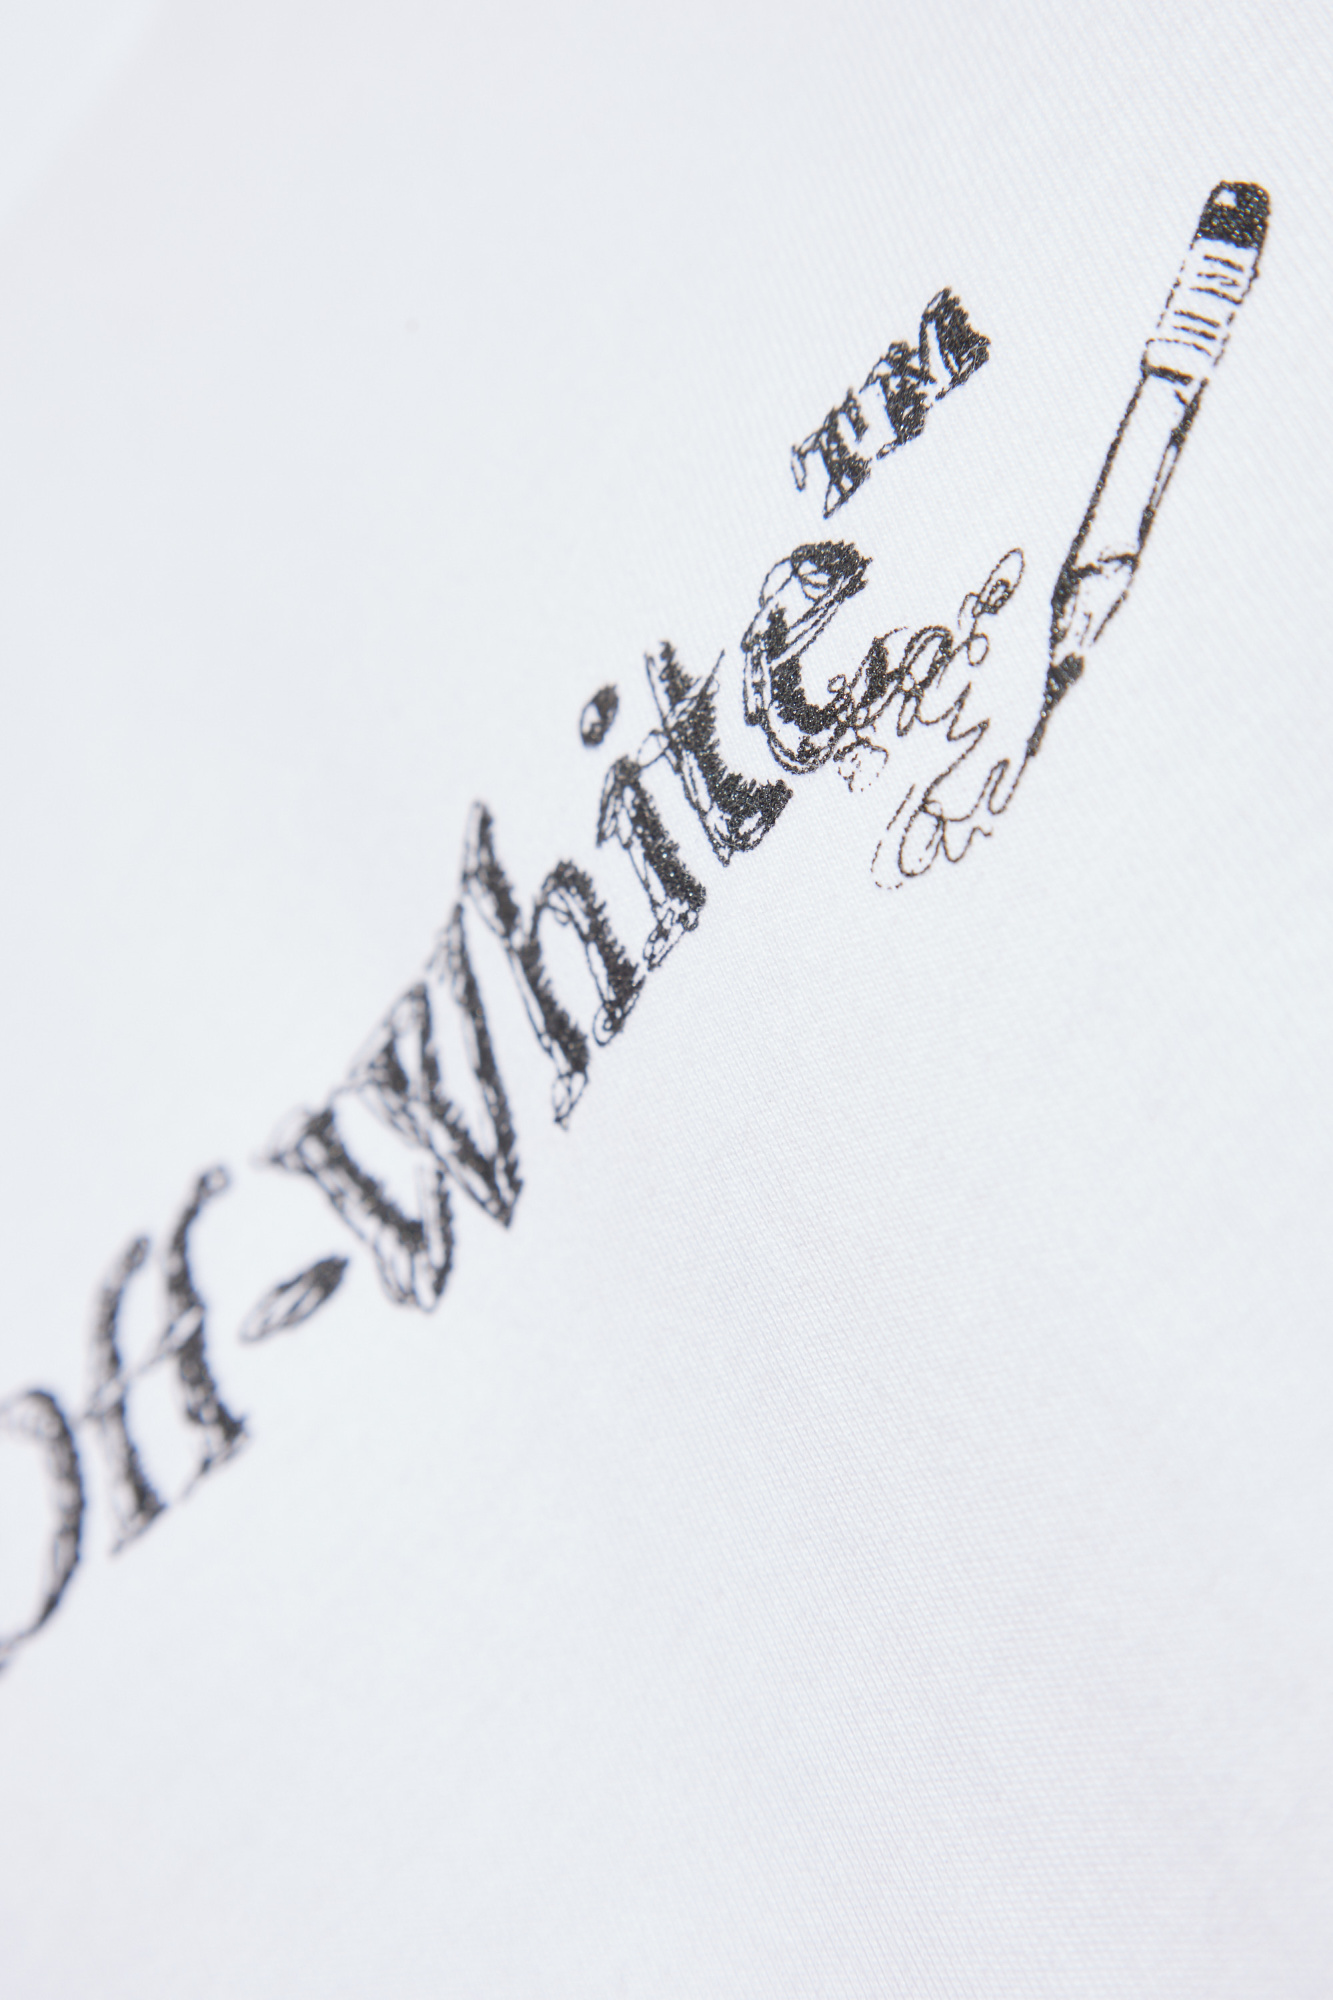 Off-White™